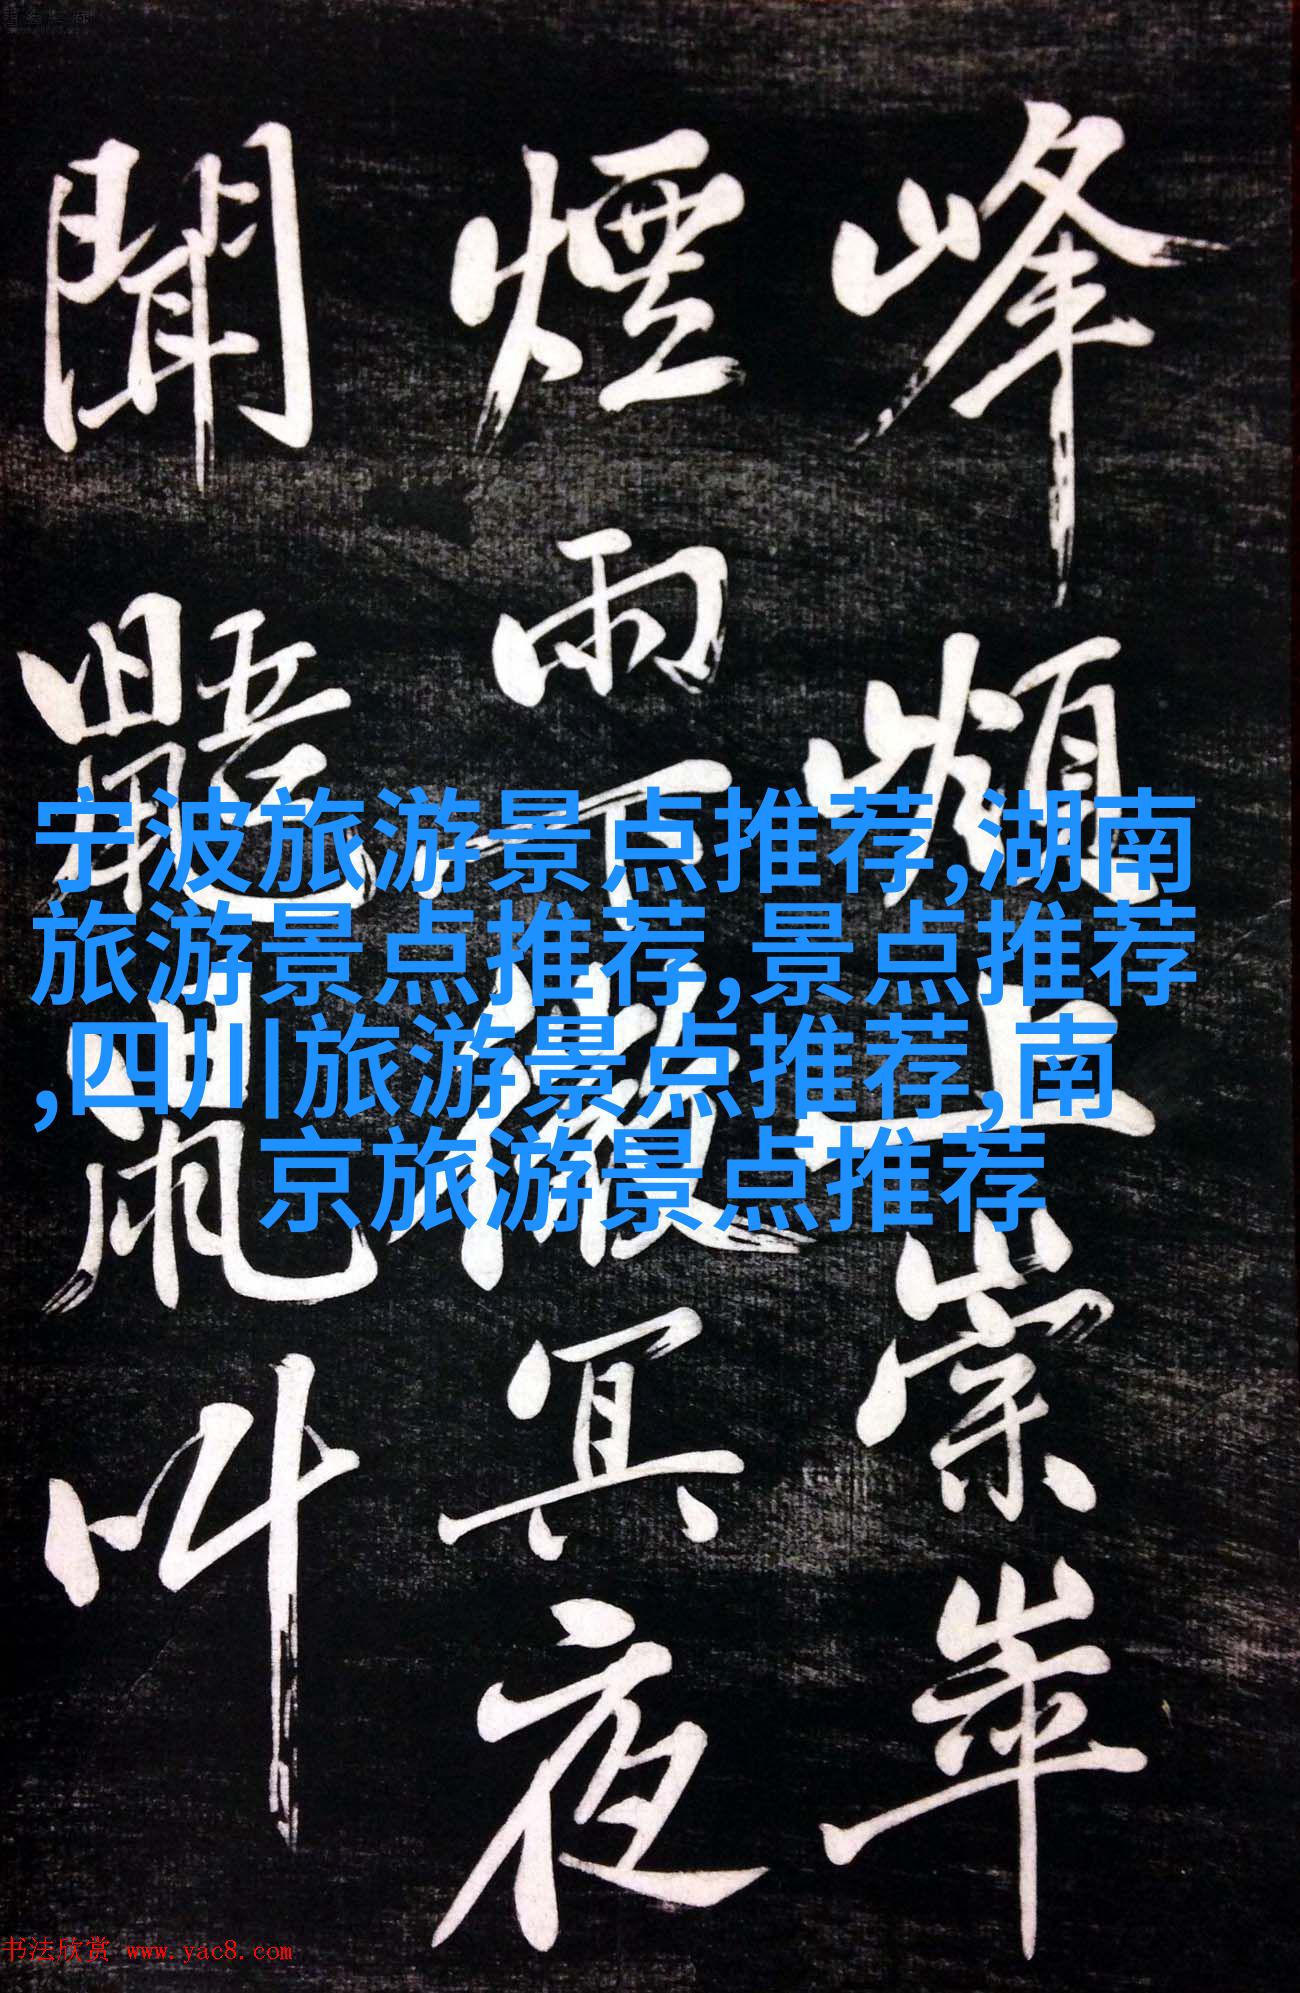 峰上崇崒
煙雨下微冥夜
聞鼯鼠叫
宁波旅游景点推荐,湖南
旅游景点推荐,景点推荐
,四川旅游景点推荐,南
京旅游景点推荐
书法欣赏 www.yac8.com